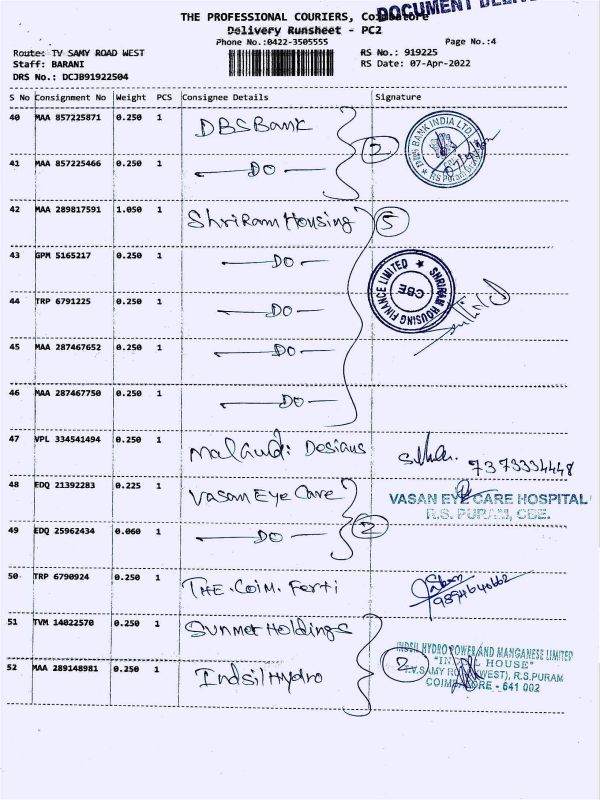 DOCUMENT
THE PROFESSIONAL COURIERS, Coimbatore
Delivery Runsheet - PC2
Phone No.:0422-3505555
Page No.:4
Route: TV SAMY ROAD WEST
RS No.: 919225
Staff: BARANI
RS Date: 07-Apr-2022
DRS No.: DCJB91922504
S No Consignment No Weight PCS Consignee Details Signature
40 MAA 857225871 0.250 1 DBS Bank
2
BANK INDIA LTD
RS Puram
41 MAA 857225466 0.250 1 DO
42 MAA 289817591 1.050 1 Shriram Housing 5
43 GPM 5165217 0.250 1 DO
SHRIRAM HOUSING FINANCE LIMITED
CBE
44 TRP 6791225 0.250 1 DO
45 MAA 287467652 0.250 1 DO
46 MAA 287467750 0.250 1 DO
47 VPL 334541494 0.250 1 Designs
7373334448
48 EDQ 21392283 0.225 1 Vasan Eye Care
VASAN EYE CARE HOSPITAL
R.S. PURAM, CBE.
49 EDQ 25962434 0.060 1 DO 2
50 TRP 6790924 0.250 1 THE. Coim. Ferti
9894640662
51 TVM 14022570 0.250 1 Sunmet Holdings
52 MAA 289148981 0.250 1 Indsil Hydro
2
INDSIL HYDRO POWER AND MANGANESE LIMITED
"INDSIL HOUSE"
T.V.SAMY ROAD (WEST), R.S.PURAM
COIMBATORE - 641 002